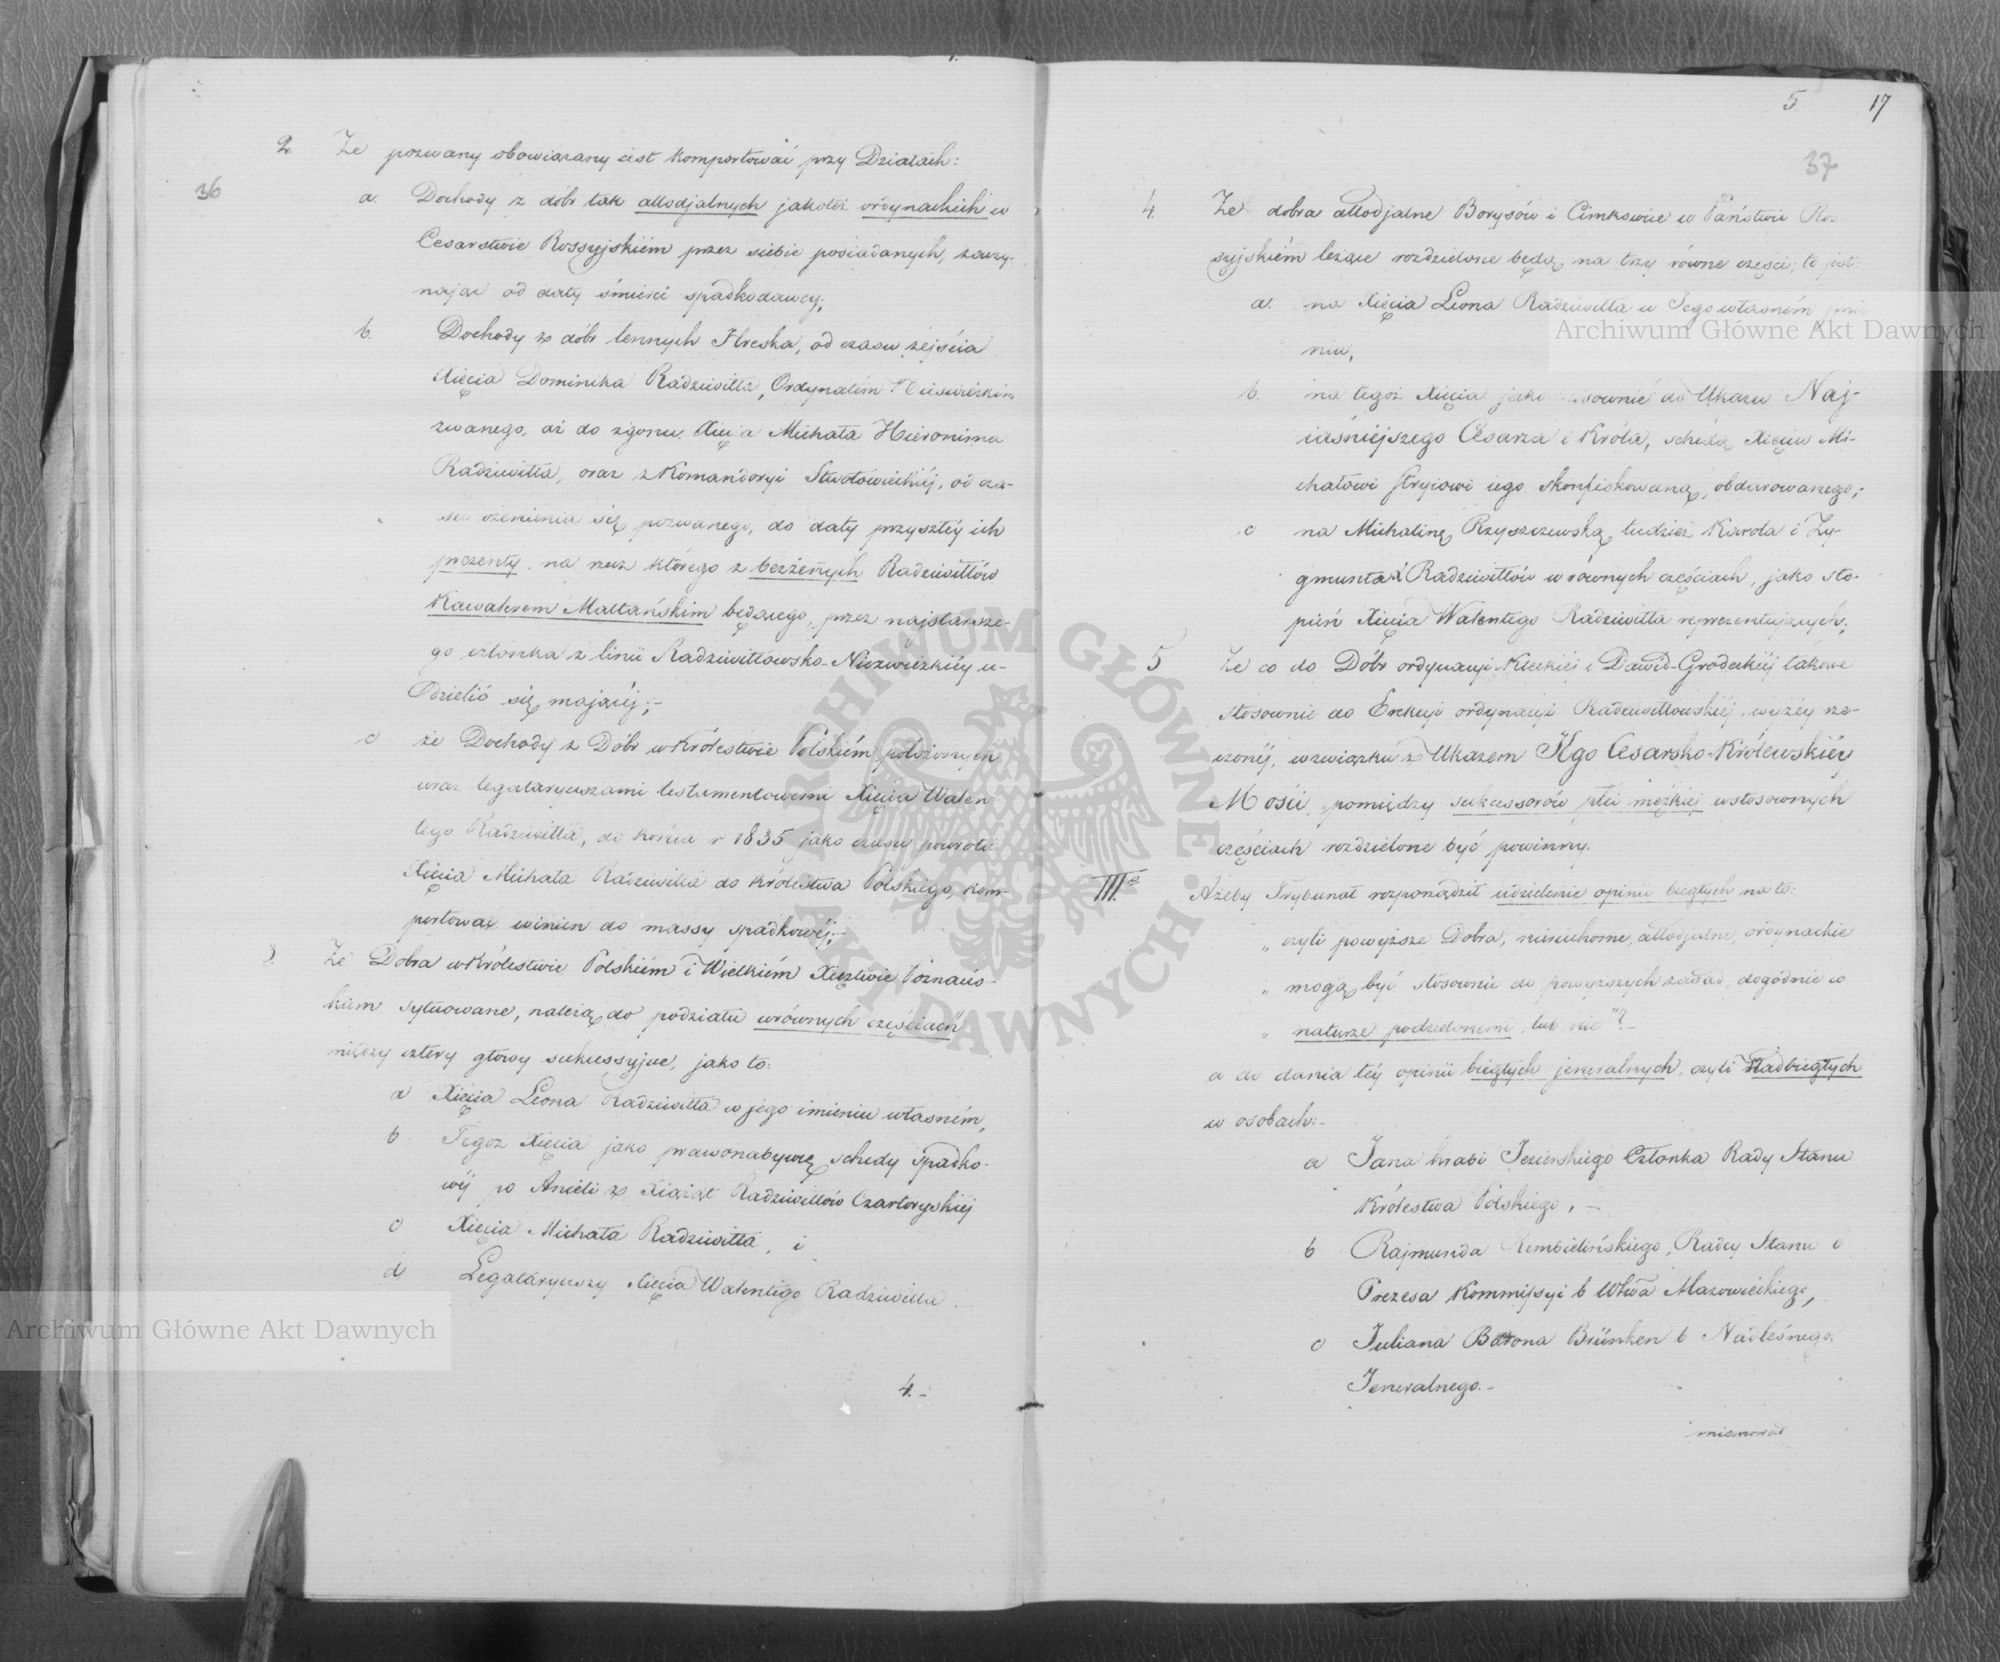 36
2. Że pozwany obowiązany iest komportować przy Działach:
a. Dochody z dóbr tak allodjalnych jakoteż ordynackich w
Cesarstwie Rossyjskiém przez siebie posiadanych, zaczy-
nając od daty śmierci spadkodawcy;
b. Dochody z dóbr lennych Hreska, od czasu zejścia
Xięcia Dominika Radziwiłła, Ordynatem Nieświezkim
zwanego, aż do zgonu Xięcia Michała Hieronima
Radziwiłła, oraz z Komandoryi Stwołowickiéj, od cza-
su ożenienia się pozwanego, do daty przyszłéy ich
prezenty, na rzecz którego z bezżennych Radziwiłłów
Kawalerem Maltańskim będącego, przez najstarsze-
go członka z linii Radziwiłłowsko-Nieświezkiéy u-
dzielić się mającéj;-
c że Dochody z Dóbr w Królestwie Polskiém położonych
wraz legataryuszami testamentowemi Xięcia Walen
tego Radziwiłła, do końca r 1835 jako czasu powrotu
Xięcia Michała Radziwiłła do Królestwa Polskiego, kom-
portować winien do massy spadkowéj;-
3. Że Dobra w Królestwie Polskiém i Wielkiém Xięztwie Poznańs-
kiem sytuowane, należą do podziału w równych częściach
między cztery głowy sukcessyjne, jako to:
a Xięcia Leona Radziwiłła w jego imieniu własném,
b Tegoż Xięcia jako prawonabywcę schedy spadko-
wéj po Anieli z Xiążąt Radziwiłłów Czartoryskiéj
c Xięcia Michała Radziwiłła, i
d Legataryuszy Xięcia Walentego Radziwiłła.
4.-
5 17
37
4. Że dobra allodjalne Borysów i Cimkowice w Państwie Ros
syjskiém leżące rozdzielone będą na trzy równe części; to jest:
a. na Xięcia Leona Radziwiłła w Jego własném imie
niu,
b. na tegoż Xięcia jako stosownie do Ukazu Naj-
iaśniejszego Cesarza i Króla, schedą Xięciu Mi-
chałowi stryiowi iego skonfiskowaną, obdarowanego;-
c na Michalinę Rzyszczewską tudzież Karola i Zy-
gmunta Radziwiłłów w równych częściach, jako sto-
pień Xięcia Walentego Radziwiłła reprezentujących;
5 Że co do Dóbr ordynacyi Kleckiéj i Dawid-Gródeckiéj takowe
stosownie do Erekcyi ordynacyi Radziwiłłowskiéj wyżéy rze-
czonéj, w związku z Ukazem Jego Cesarsko-Królewskiéy
Mości, pomiędzy sukcessorów płci męzkiéj w stosownych
częściach rozdzielone być powinny.
III.e Ażeby Trybunał rozporządził udzielenie opinii biegłych na to:
„ czyli powyższe Dobra, nieruchome, allodjalne, ordynackie
„ mogą być stosownie do powyższych zasad, dogodnie w
„ naturze podzielonemi, lub nie"?-
a do dania téy opinii biegłych jeneralnych, czyli Nadbiegłych
w osobach:-
a Jana hrabi Jezierskiego Członka Rady Stanu
Królestwa Polskiego, -
b Rajmunda Rembielińskiego, Radcy Stanu i
Prezesa Kommissyi b Wtwa Mazowieckiego,
c Juliana Barona Brünken b Nadleśnego
Jeneralnego.-
mianował